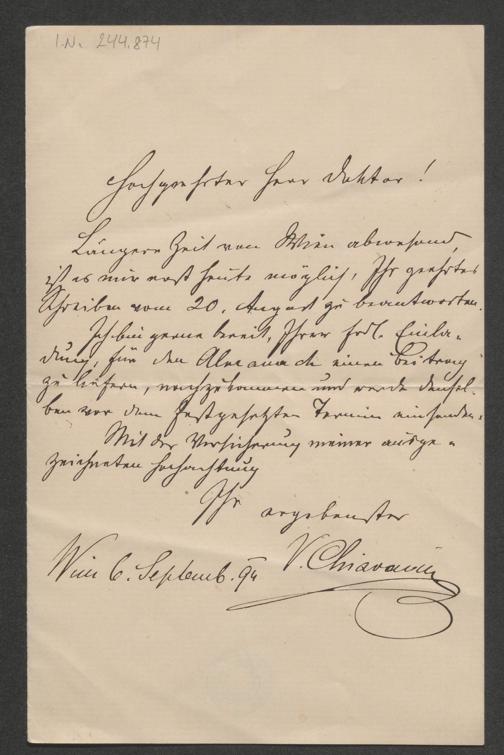 I.N. 244.874
Hochgeehrter Herr Doktor!
Längere Zeit von Wien abwesend,
ist es mir erst heute möglich, Ihr geehrtes
Schreiben vom 20. August zu beantworten.
Ich bin gerne bereit, Ihrer frdl. Einla-
dung, für den Almanach einen Beitrag
zu liefern, nachzukommen und werde densel-
ben vor dem festgesetzten Termin einsenden.
Mit der Versicherung meiner ausge-
zeichneten Hochachtung
Ihr ergebenster
Wien 6. Septemb. 94 V. Chiavacci